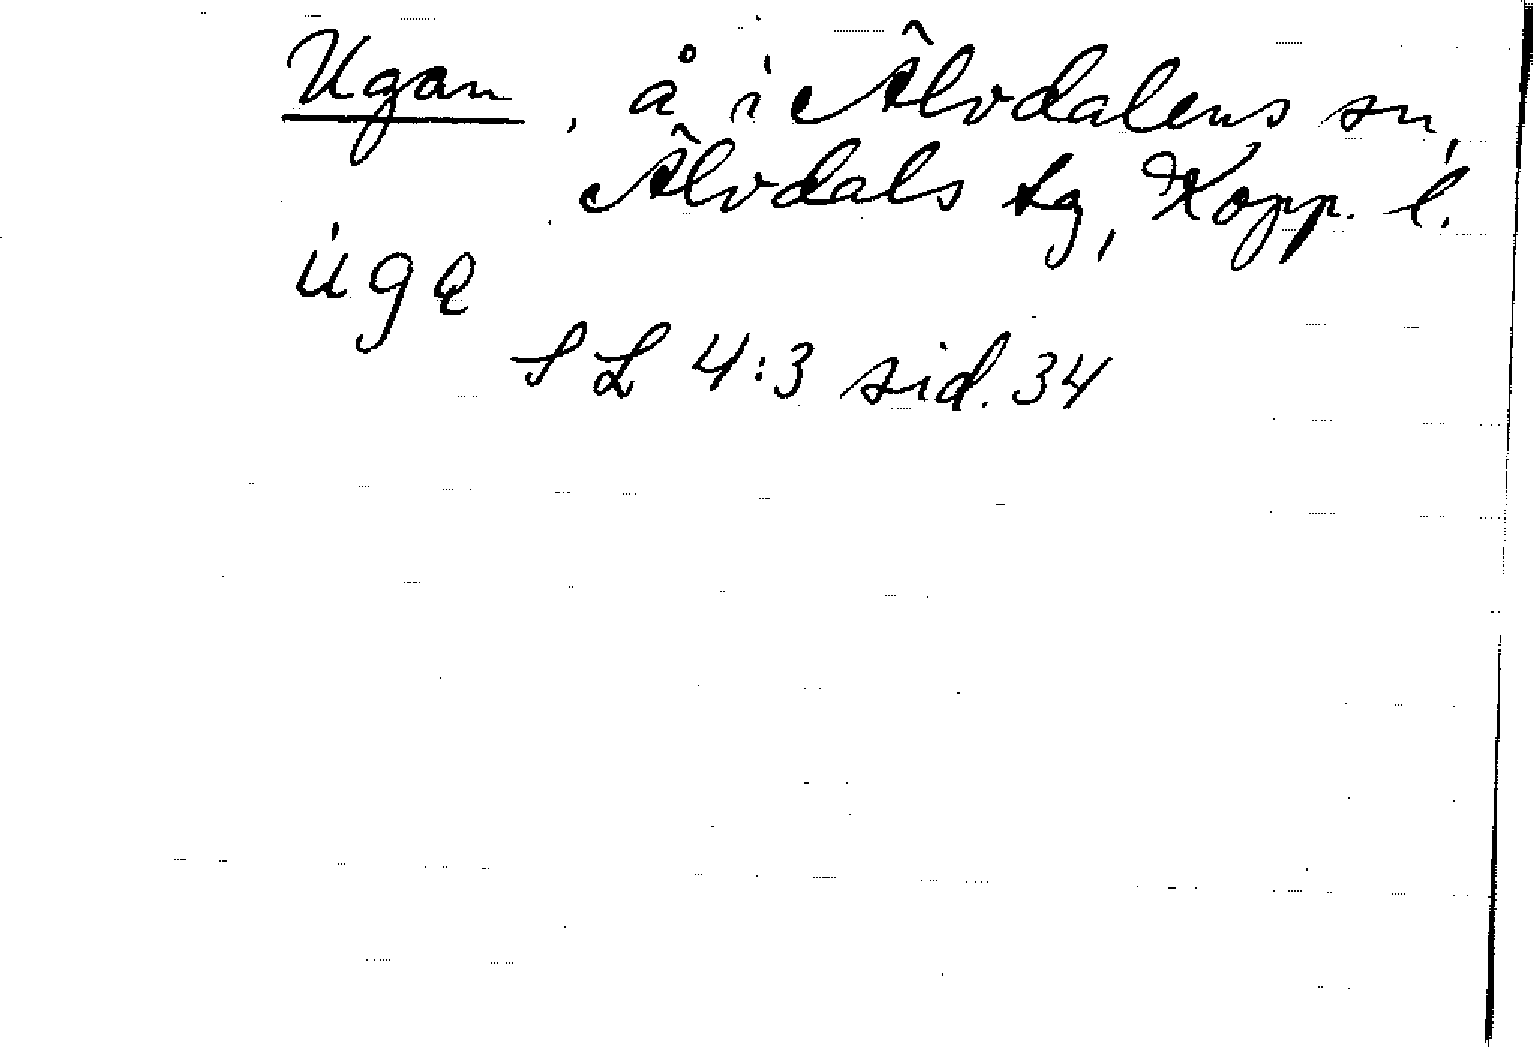 Ugan, å i Älvdalens sn,
Älvdals tg, Kopp. l.
úgą
SL 4:3 sid. 34